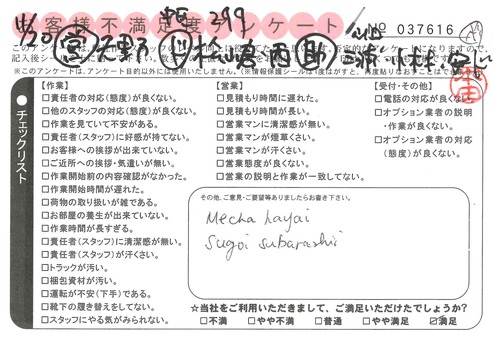 お客様不満足度アンケート
No 037616
11/30
299
このアンケートは、
※このアンケートは、アンケート目的以外には使用いたしません。(※情報保護シールは1度はがすと、再度貼りなおすことはできません。)
チェックリスト
【作業】
□責任者の対応(態度)が良くない。
□他のスタッフの対応(態度)が良くない。
□作業を見ていて不安がある。
□責任者(スタッフ)に好感が持てない。
□お客様への挨拶が出来ていない。
□ご近所への挨拶・気遣いが無い。
□作業開始前の内容確認がなかった。
□作業開始時間が遅れた。
□荷物の取り扱いが雑である。
□お部屋の養生が出来ていない。
□作業時間が長すぎる。
□責任者(スタッフ)に清潔感が無い。
□責任者(スタッフ)が汗くさい。
□トラックが汚い。
□梱包資材が汚い。
□運転が不安(下手)である。
□靴下の履き替えをしてない。
□スタッフにやる気がみられない。
【営業】
□見積もり時間に遅れた。
□見積もり時間が長い。
□営業マンに清潔感が無い。
□営業マンが煙草くさい。
□営業マンが汗くさい。
□営業態度が良くない。
□営業の説明と作業が一致してない。
【受付・その他】
□電話の対応が良くない。
□オプション業者の説明・作業が良くない。
□オプション業者の対応(態度)が良くない。
その他、ご意見・ご要望等ありましたらお書き下さい。
Mecha hayai
Sugoi subarashii
☆当社をご利用いただきまして、ご満足いただけたでしょうか?
□不満 □やや不満 □普通 □やや満足 ☑満足